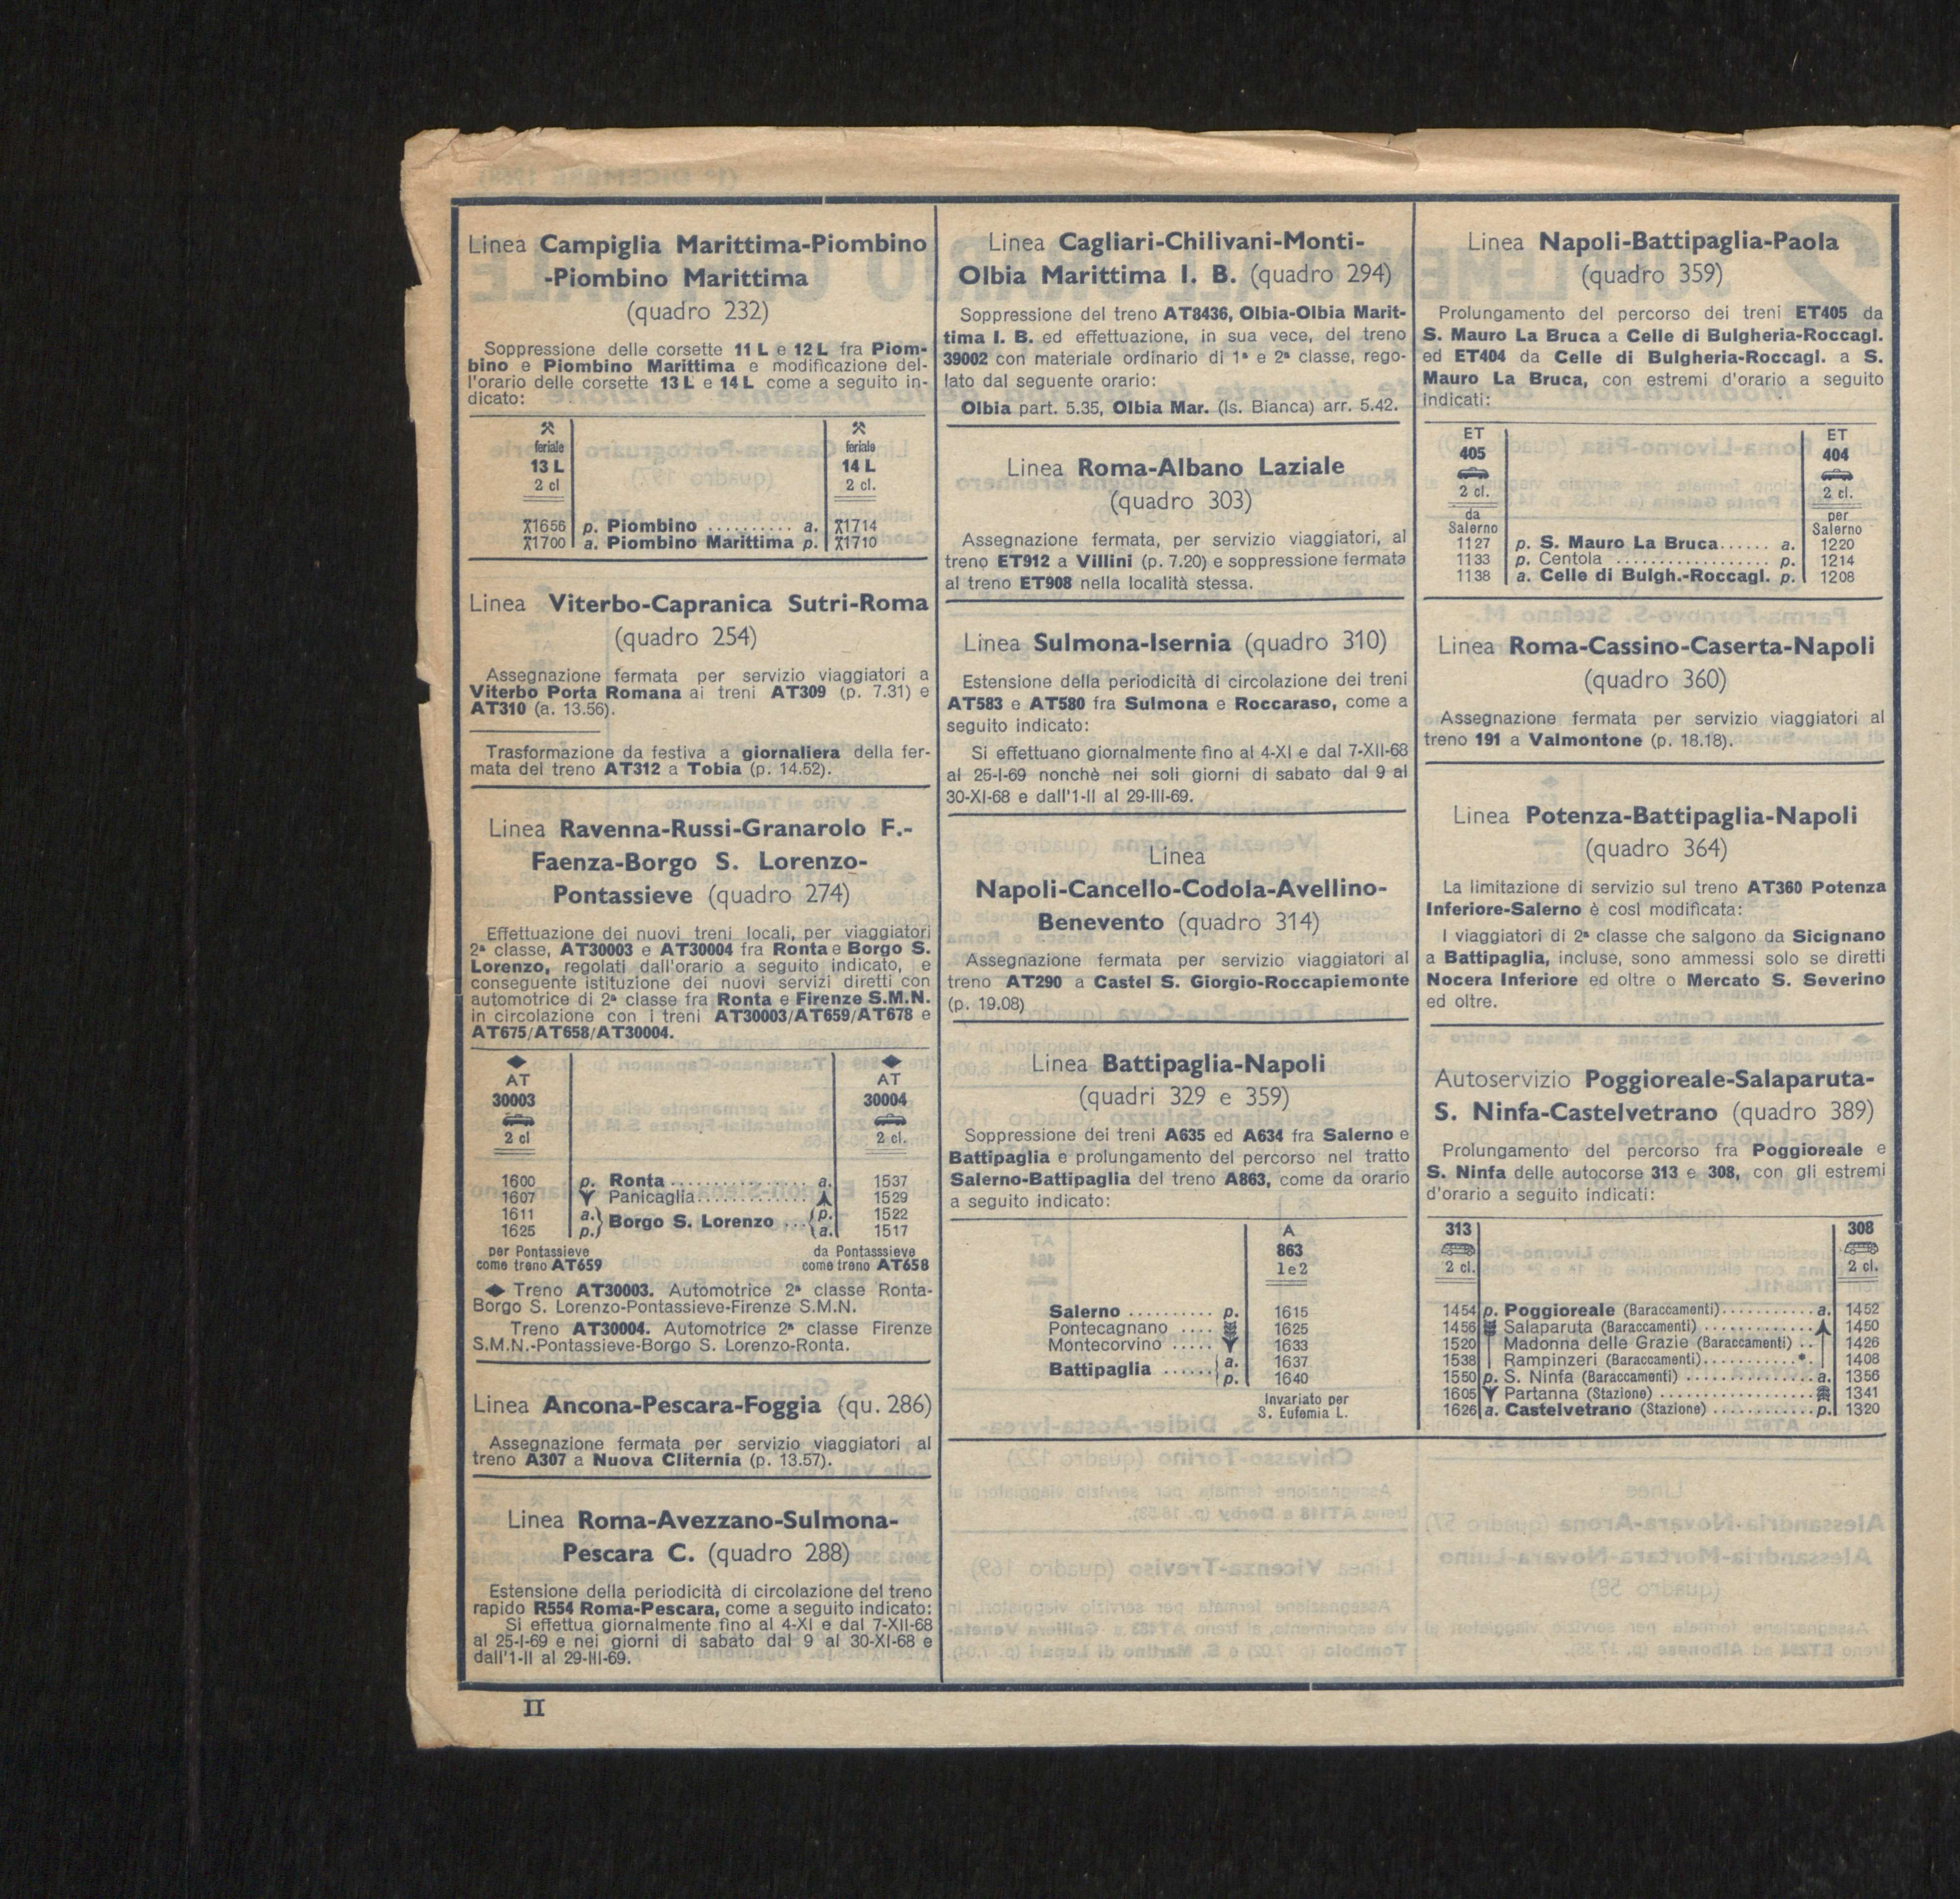 Linea Campiglia Marittima-Piombino
-Piombino Marittima
(quadro 232)
Soppressione delle corsette 11 L e 12 L fra Piom-
bino e Piombino Marittima e modificazione del-
l'orario delle corsette 13 L e 14 L come a seguito in-
dicato:
feriale feriale
13 L 14 L
2 cl 2 cl.
1656 p. Piombino .......... a. 1714
1700 a. Piombino Marittima p. 1710
Linea Viterbo-Capranica Sutri-Roma
(quadro 254)
Assegnazione fermata per servizio viaggiatori a
Viterbo Porta Romana ai treni AT309 (p. 7.31) e
AT310 (a. 13.56).
Trasformazione da festiva a giornaliera della fer-
mata del treno AT312 a Tobia (p. 14.52).
Linea Ravenna-Russi-Granarolo F.-
Faenza-Borgo S. Lorenzo-
Pontassieve (quadro 274)
Effettuazione dei nuovi treni locali, per viaggiatori
2ª classe, AT30003 e AT30004 fra Ronta e Borgo S.
Lorenzo, regolati dall'orario a seguito indicato, e
conseguente istituzione dei nuovi servizi diretti con
automotrice di 2ª classe fra Ronta e Firenze S.M.N.
in circolazione con i treni AT30003/AT659/AT678 e
AT675/AT658/AT30004.
◆ ◆
AT AT
30003 30004
2 cl 2 cl.
1600 p. Ronta ................ a. 1537
1607 Panicaglia .............. 1529
1611 a. Borgo S. Lorenzo ... p. 1522
1625 p. a. 1517
per Pontassieve da Pontasssieve
come treno AT659 come treno AT658
◆ Treno AT30003. Automotrice 2ª classe Ronta-
Borgo S. Lorenzo-Pontassieve-Firenze S.M.N.
Treno AT30004. Automotrice 2ª classe Firenze
S.M.N.-Pontassieve-Borgo S. Lorenzo-Ronta.
Linea Ancona-Pescara-Foggia (qu. 286)
Assegnazione fermata per servizio viaggiatori al
treno A307 a Nuova Cliternia (p. 13.57).
Linea Roma-Avezzano-Sulmona-
Pescara C. (quadro 288)
Estensione della periodicità di circolazione del treno
rapido R554 Roma-Pescara, come a seguito indicato:
Si effettua giornalmente fino al 4-XI e dal 7-XII-68
al 25-I-69 e nei giorni di sabato dal 9 al 30-XI-68 e
dall'1-II al 29-III-69.
II
Linea Cagliari-Chilivani-Monti-
Olbia Marittima I. B. (quadro 294)
Soppressione del treno AT8436, Olbia-Olbia Marit-
tima I. B. ed effettuazione, in sua vece, del treno
39002 con materiale ordinario di 1ª e 2ª classe, rego-
lato dal seguente orario:
Olbia part. 5.35, Olbia Mar. (Is. Bianca) arr. 5.42.
Linea Roma-Albano Laziale
(quadro 303)
Assegnazione fermata, per servizio viaggiatori, al
treno ET912 a Villini (p. 7.20) e soppressione fermata
al treno ET908 nella località stessa.
Linea Sulmona-Isernia (quadro 310)
Estensione della periodicità di circolazione dei treni
AT583 e AT580 fra Sulmona e Roccaraso, come a
seguito indicato:
Si effettuano giornalmente fino al 4-XI e dal 7-XII-68
al 25-I-69 nonchè nei soli giorni di sabato dal 9 al
30-XI-68 e dall'1-II al 29-III-69.
Linea
Napoli-Cancello-Codola-Avellino-
Benevento (quadro 314)
Assegnazione fermata per servizio viaggiatori al
treno AT290 a Castel S. Giorgio-Roccapiemonte
(p. 19.08)
Linea Battipaglia-Napoli
(quadri 329 e 359)
Soppressione dei treni A635 ed A634 fra Salerno e
Battipaglia e prolungamento del percorso nel tratto
Salerno-Battipaglia del treno A863, come da orario
a seguito indicato:
A
863
1 e 2
Salerno .......... p. 1615
Pontecagnano .... 1625
Montecorvino ..... 1633
Battipaglia ...... a. 1637
p. 1640
Invariato per
S. Eufemia L.
Linea Napoli-Battipaglia-Paola
(quadro 359)
Prolungamento del percorso dei treni ET405 da
S. Mauro La Bruca a Celle di Bulgheria-Roccagl.
ed ET404 da Celle di Bulgheria-Roccagl. a S.
Mauro La Bruca, con estremi d'orario a seguito
indicati:
ET ET
405 404
2 cl. 2 cl.
da per
Salerno Salerno
1127 p. S. Mauro La Bruca...... a. 1220
1133 p. Centola .................. p. 1214
1138 a. Celle di Bulgh.-Roccagl. p. 1208
Linea Roma-Cassino-Caserta-Napoli
(quadro 360)
Assegnazione fermata per servizio viaggiatori al
treno 191 a Valmontone (p. 18.18).
Linea Potenza-Battipaglia-Napoli
(quadro 364)
La limitazione di servizio sul treno AT360 Potenza
Inferiore-Salerno è così modificata:
I viaggiatori di 2ª classe che salgono da Sicignano
a Battipaglia, incluse, sono ammessi solo se diretti
Nocera Inferiore ed oltre o Mercato S. Severino
ed oltre.
Autoservizio Poggioreale-Salaparuta-
S. Ninfa-Castelvetrano (quadro 389)
Prolungamento del percorso fra Poggioreale e
S. Ninfa delle autocorse 313 e 308, con gli estremi
d'orario a seguito indicati:
313 308
2 cl. 2 cl.
1454 p. Poggioreale (Baraccamenti)........... a. 1452
1456 Salaparuta (Baraccamenti) .............. 1450
1520 Madonna delle Grazie (Baraccamenti) .. 1426
1538 Rampinzeri (Baraccamenti)........... 1408
1550 p. S. Ninfa (Baraccamenti) .............. a. 1356
1605 Partanna (Stazione) ................. 1341
1626 a. Castelvetrano (Stazione) ............ p. 1320